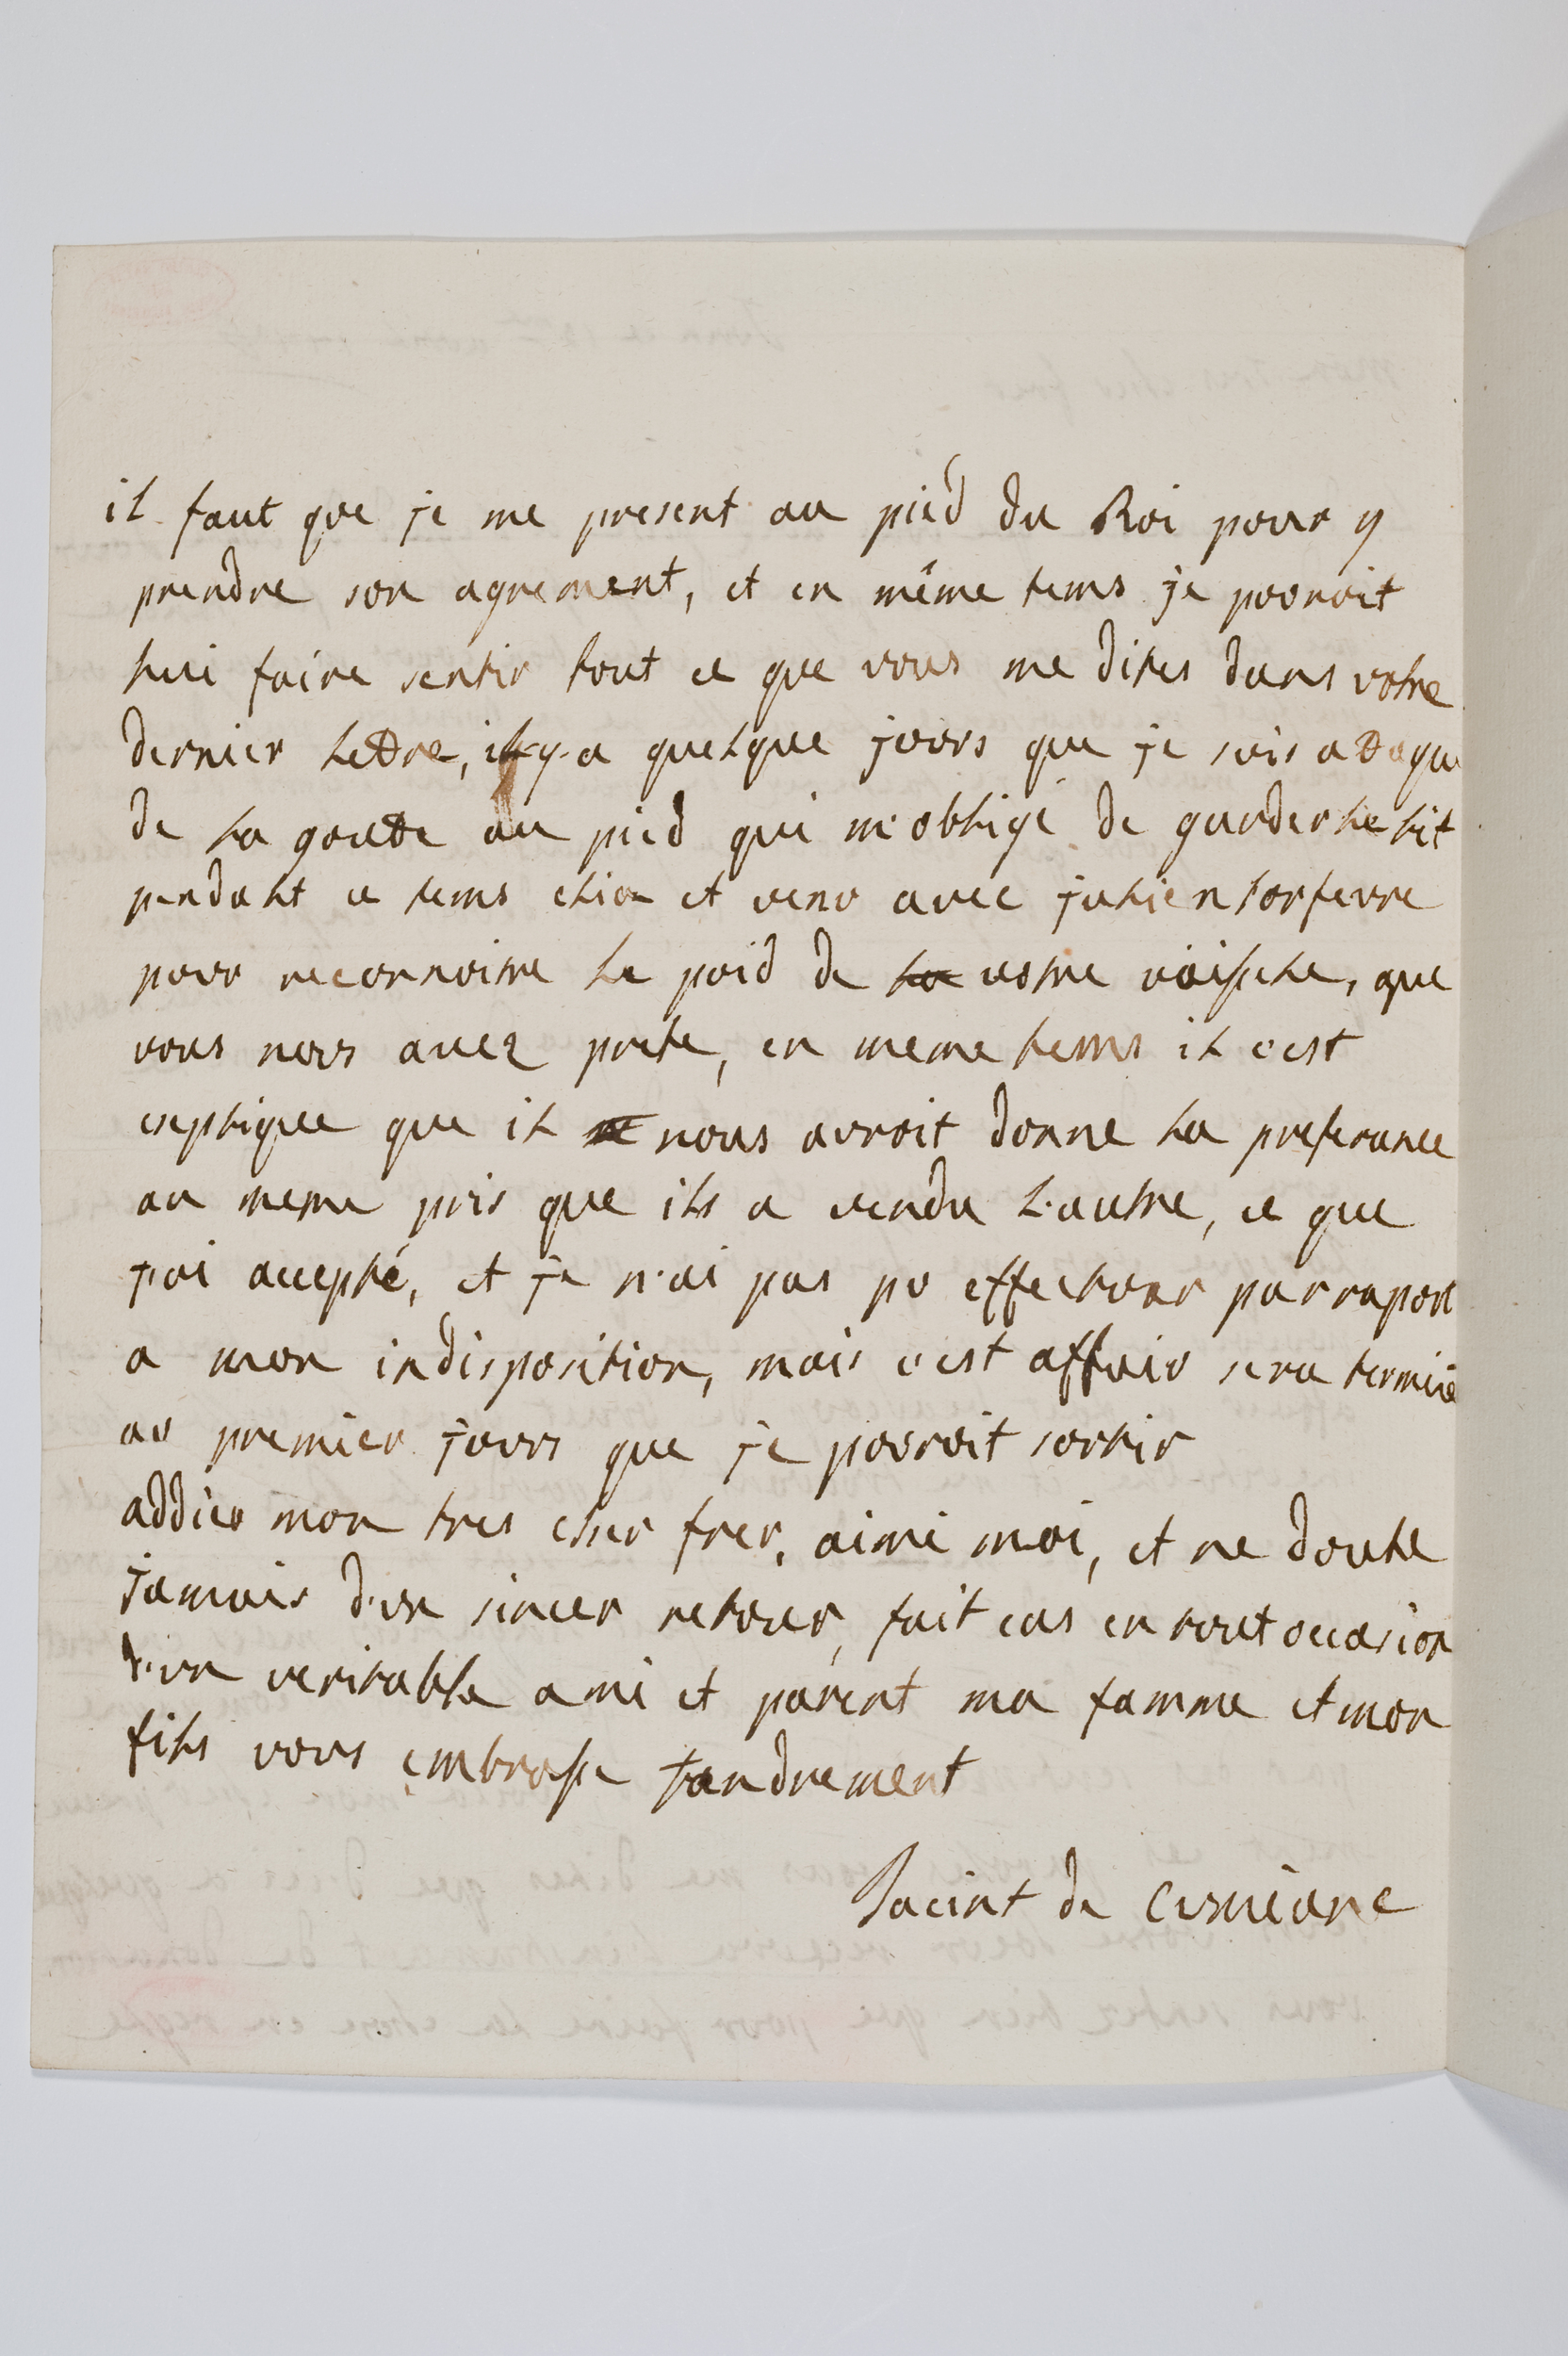 il faut que je me present au pied du Roi pour y
prendre son agrement, et en même tems je pouroit
lui faire sentir tout ce que vous me dites dans votre
dernier lettre, il y a quelque jours que je suis attaque
de la goutte au pied qui m'obligé de garder le lit
pendant ce tems et venu avec julien l'orfevre
pour reconnoitre le poid de la votre vaisselle, que
vous nous avez prete, en meme tems il c'est
expliquee que il ne nous auroit donne la preferance
au meme pris que ils a vendu l'autre, ce que
j'ai accepté, et je n'ai pas pu effectuer par raport
a mon indisposition, mais c'est affair sera terminé
au premier jours que je pouroit sortir
addieu mon tres cher frer, aimé moi, et ne doute
jamais d'un sincer retour, fait cas en tout occasion
d'un veritable ami et parent ma famme et mon
fils vous embrasse tandrement
Jacint de Cumiane